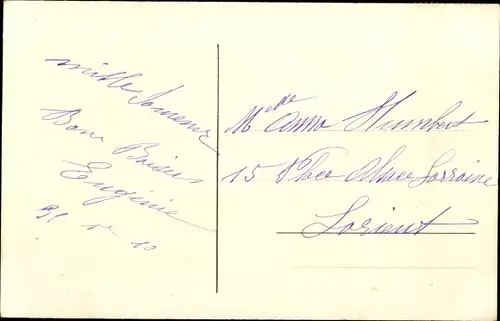 mille
Bons Baisers
Eugénie
Melle Anna Humbert
15 Place Alsace Lorraine
Lorient